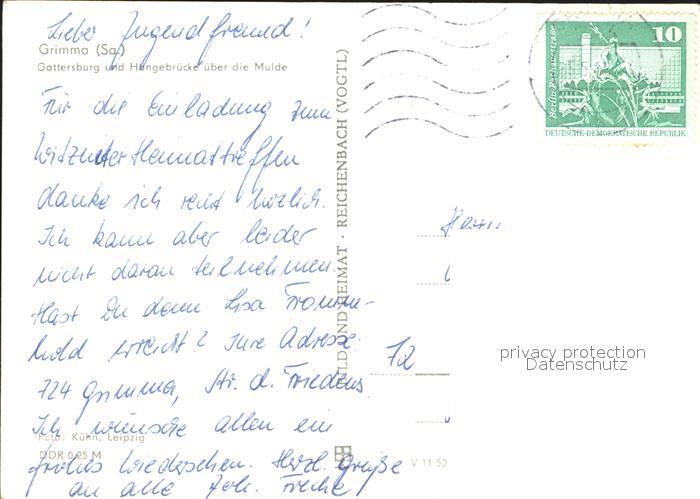 Lieber Jugendfreund!
Grimma (Sa.)
Gattersburg und Hängebrücke über die Mulde
Für die Einladung zum
Heimattreffen
danke ich recht herzlich.
Ich kann aber leider
nicht daran teilnehmen.
Hast Du denn Lisa Fromm-
hold erreicht? Ihre Adresse:
724 Grimma, Str. d. Friedens
Ich wünsche allen ein
Foto: Kühn, Leipzig
DDR 0,25 M
frohes Wiedersehen. Herzl. Grüße
an alle Joh.
BILD UND HEIMAT · REICHENBACH (VOGTL)
V 11 50
10
Berlin, Rathausstraße
DEUTSCHE DEMOKRATISCHE REPUBLIK
Herrn
72
privacy protection
Datenschutz